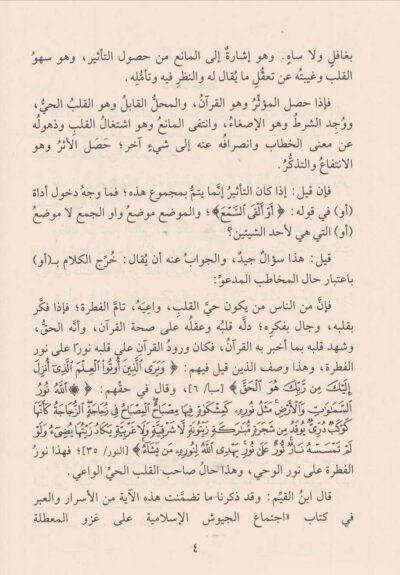 بغافلٍ ولا ساهٍ. وهو إشارةٌ إلى المانع من حصول التأثير، وهو سهوُ
القلب وغيبتُه عن تعقُّلِ ما يُقال له والنظرِ فيه وتأمُّلِه.
فإذا حصل المؤثِّرُ وهو القرآنُ، والمحلُّ القابلُ وهو القلبُ الحيُّ،
ووُجِد الشرطُ وهو الإصغاءُ، وانتفى المانعُ وهو اشتغالُ القلبِ وذهولُه
عن معنى الخطاب وانصرافُه عنه إلى شيءٍ آخر؛ حَصَل الأثرُ وهو
الانتفاعُ والتذكُّرُ.
فإن قيل: إذا كان التأثيرُ إنَّما يتمُّ بمجموع هذه؛ فما وجهُ دخول أداة
(أو) في قوله: ﴿ أَوْ أَلْقَى السَّمْعَ﴾؛ والموضع موضعُ واو الجمع لا موضعُ
(أو) التي هي لأحد الشيئين؟
قيل: هذا سؤالٌ جيدٌ، والجوابُ عنه أن يُقال: خُرِّج الكلام بـ(أو)
باعتبار حال المخاطب المدعوِّ:
فإنَّ من الناس من يكون حيَّ القلبِ، واعِيَهُ، تامَّ الفطرة؛ فإذا فكَّر
بقلبه، وجال بفكرِه؛ دلَّه قلبُه وعقلُه على صحة القرآن، وأنَّه الحقُّ،
وشهد قلبه بما أخبر به القرآنُ، فكان ورودُ القرآنِ على قلبه نورًا على نور
الفطرة، وهذا وصف الذين قيل فيهم: ﴿ وَيَرَى الَّذِينَ أُوتُوا الْعِلْمَ الَّذِي أُنْزِلَ
إِلَيْكَ مِن رَّبِّكَ هُوَ الْحَقَّ ﴾ [سبأ/ ٦]، وقال في حقِّهم: ﴿ ۞ اللَّهُ نُورُ
السَّمَاوَاتِ وَالْأَرْضِ مَثَلُ نُورِهِ كَمِشْكَاةٍ فِيهَا مِصْبَاحٌ الْمِصْبَاحُ فِي زُجَاجَةٍ الزُّجَاجَةُ كَأَنَّهَا
كَوْكَبٌ دُرِّيٌّ يُوقَدُ مِن شَجَرَةٍ مُّبَارَكَةٍ زَيْتُونَةٍ لَّا شَرْقِيَّةٍ وَلَا غَرْبِيَّةٍ يَكَادُ زَيْتُهَا يُضِيءُ وَلَوْ
لَمْ تَمْسَسْهُ نَارٌ نُّورٌ عَلَى نُورٍ يَهْدِي اللَّهُ لِنُورِهِ مَن يَشَاءُ﴾ [النور/ ٣٥]؛ فهذا نورُ
الفطرة على نور الوحي، وهذا حالُ صاحب القلب الحيِّ الواعي.
قال ابنُ القيِّم: وقد ذكرنا ما تضمَّنت هذه الآية من الأسرار والعبر
في كتاب «اجتماع الجيوش الإسلامية على غزو المعطلة
٤